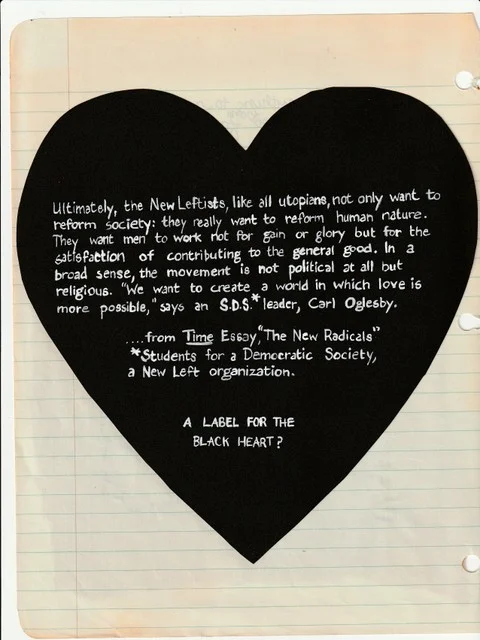 Ultimately, the New Leftists, like all utopians, not only want to
reform society: they really want to reform human nature.
They want men to work not for gain or glory but for the
satisfaction of contributing to the general good. In a
broad sense, the movement is not political at all but
religious. "We want to create a world in which love is
more possible," says an S.D.S.* leader, Carl Oglesby.
....from Time Essay, "The New Radicals"
*Students for a Democratic Society,
a New Left organization.
A LABEL FOR THE
BLACK HEART?